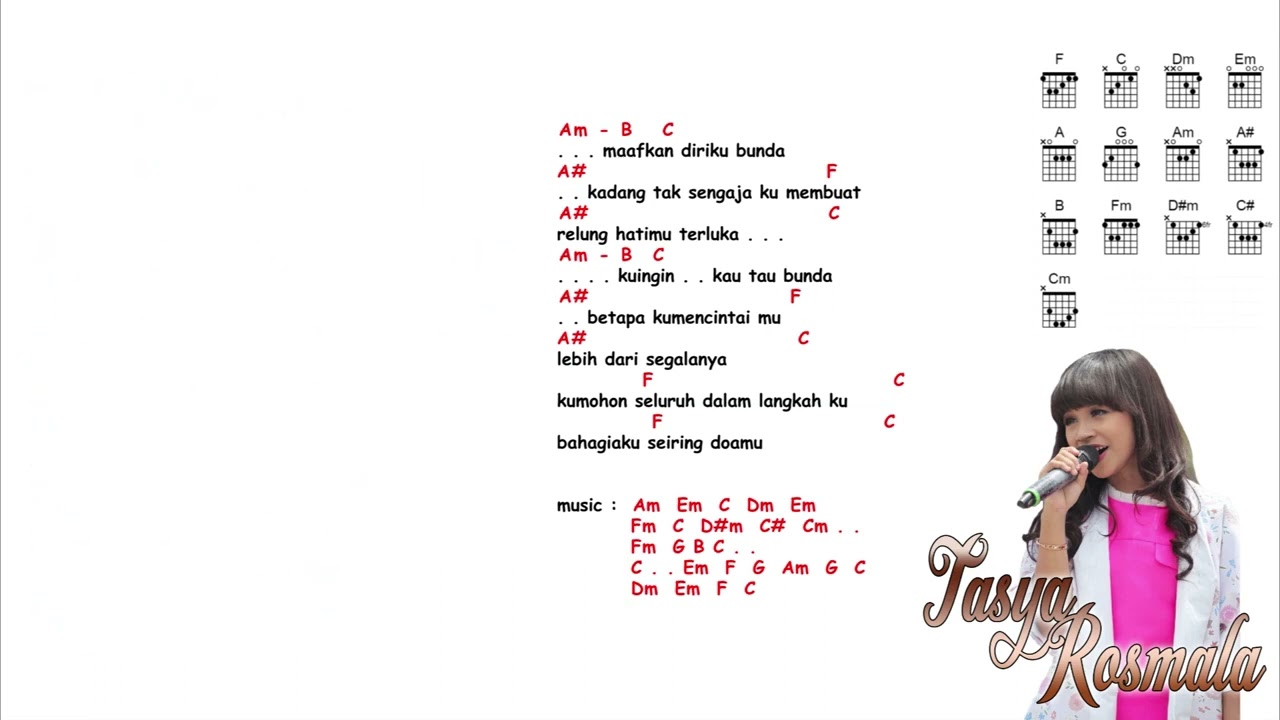 Am - B C
. . . maafkan diriku bunda
A# F
. . kadang tak sengaja ku membuat
A# C
relung hatimu terluka . . .
Am - B C
. . . . kuingin . . kau tau bunda
A# F
. . betapa kumencintai mu
A# C
lebih dari segalanya
F C
kumohon seluruh dalam langkah ku
F C
bahagiaku seiring doamu
music : Am Em C Dm Em
Fm C D#m C# Cm . .
Fm G B C . .
C . . Em F G Am G C
Dm Em F C
F C Dm Em
A G Am A#
B Fm D#m C#
6fr 4fr
Cm
Tasya
Rosmala